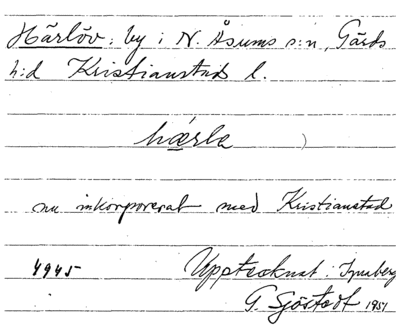 Härlöv, by i N. Åsums s:n, Gärds
h:d Kristianstads l.
hærlə
nu inkorporerat med Kristianstad
4945 Upptecknat:
G. Sjöstedt 1951